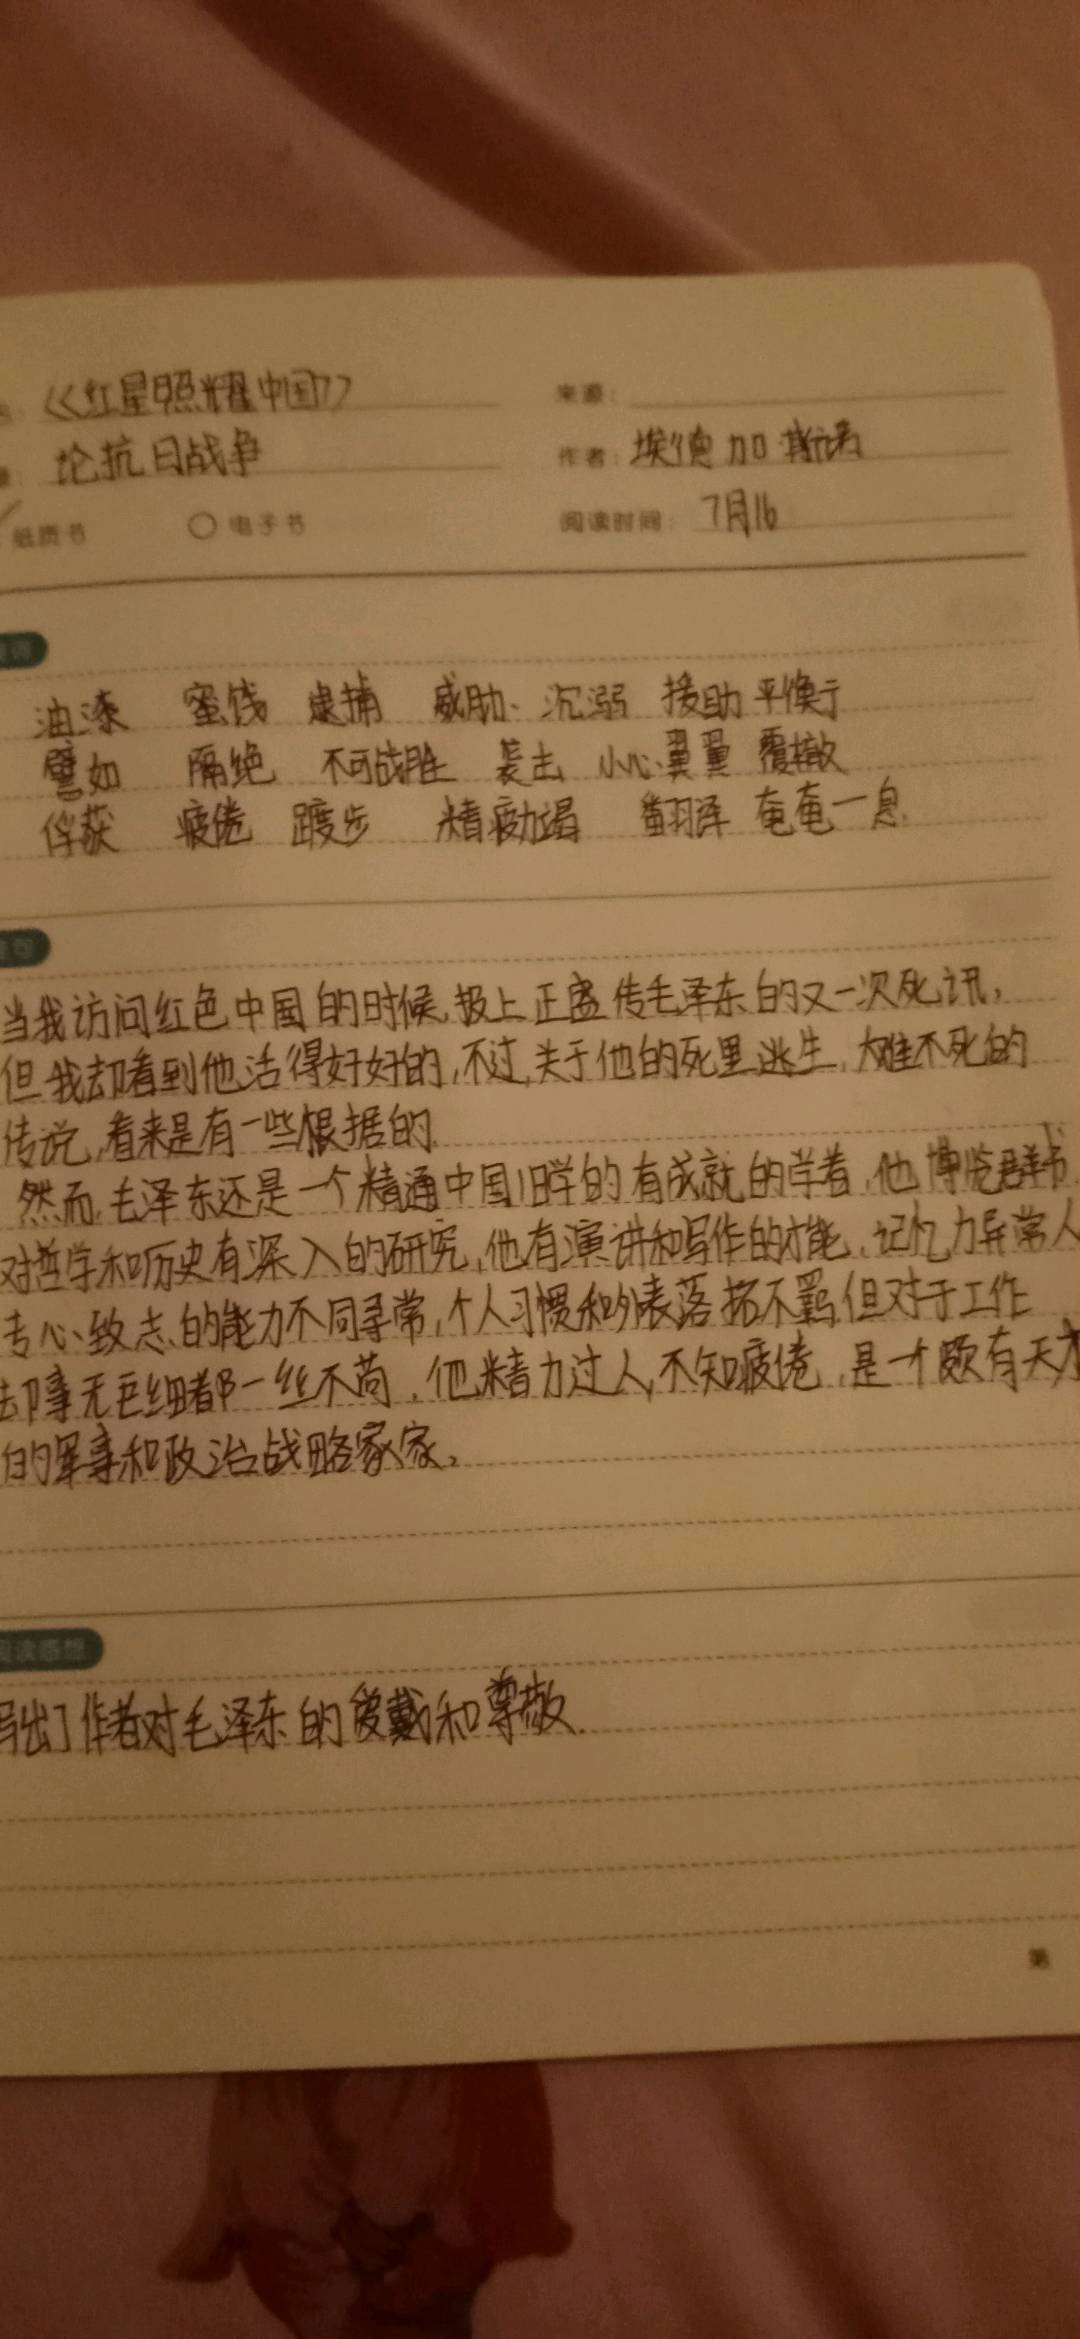 《红星照耀中国》 来源：
论抗日战争 作者：埃德加 斯诺
纸质书 ○ 电子书 阅读时间：7月16
油漆 蜜饯 逮捕 威胁 沉溺 援助 平衡
譬如 隔绝 不可战胜 袭击 小心翼翼 覆辙
俘获 疲倦 踱步 精疲力竭 翻译 奄奄一息
当我访问红色中国的时候,报上正盛传毛泽东的又一次死讯,
但我却看到他活得好好的,不过,关于他的死里逃生,大难不死的
传说,看来是有一些根据的.
然而,毛泽东还是一个精通中国旧学的有成就的学者,他博览群书
对哲学和历史有深入的研究,他有演讲和写作的才能,记忆力异常人
专心致志的能力不同寻常,个人习惯和外表落拓不羁,但对于工作
却事无巨细都一丝不苟,他精力过人,不知疲倦,是一个颇有天才
的军事和政治战略家家。
阅读感想
写出了作者对毛泽东的爱戴和尊敬.
第